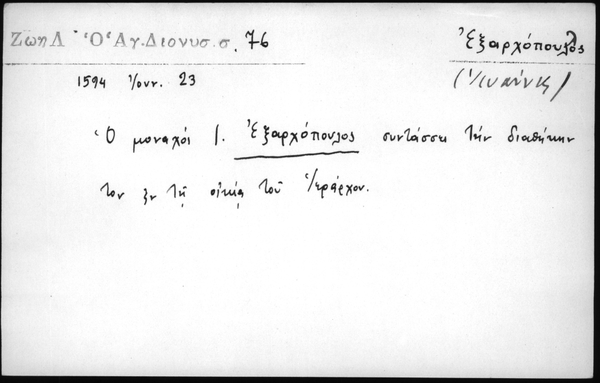 Ζώη Λ. Ὁ Ἅγ. Διονυσ. σ. 76
Ἐξαρχόπουλος
(Ἰωάννης)
1594 Ἰουν. 23
Ὁ μοναχὸς Ι. Ἐξαρχόπουλος συντάσσει τὴν διαθήκην
του ἐν τῇ οἰκίᾳ τοῦ Ἱεράρχου.